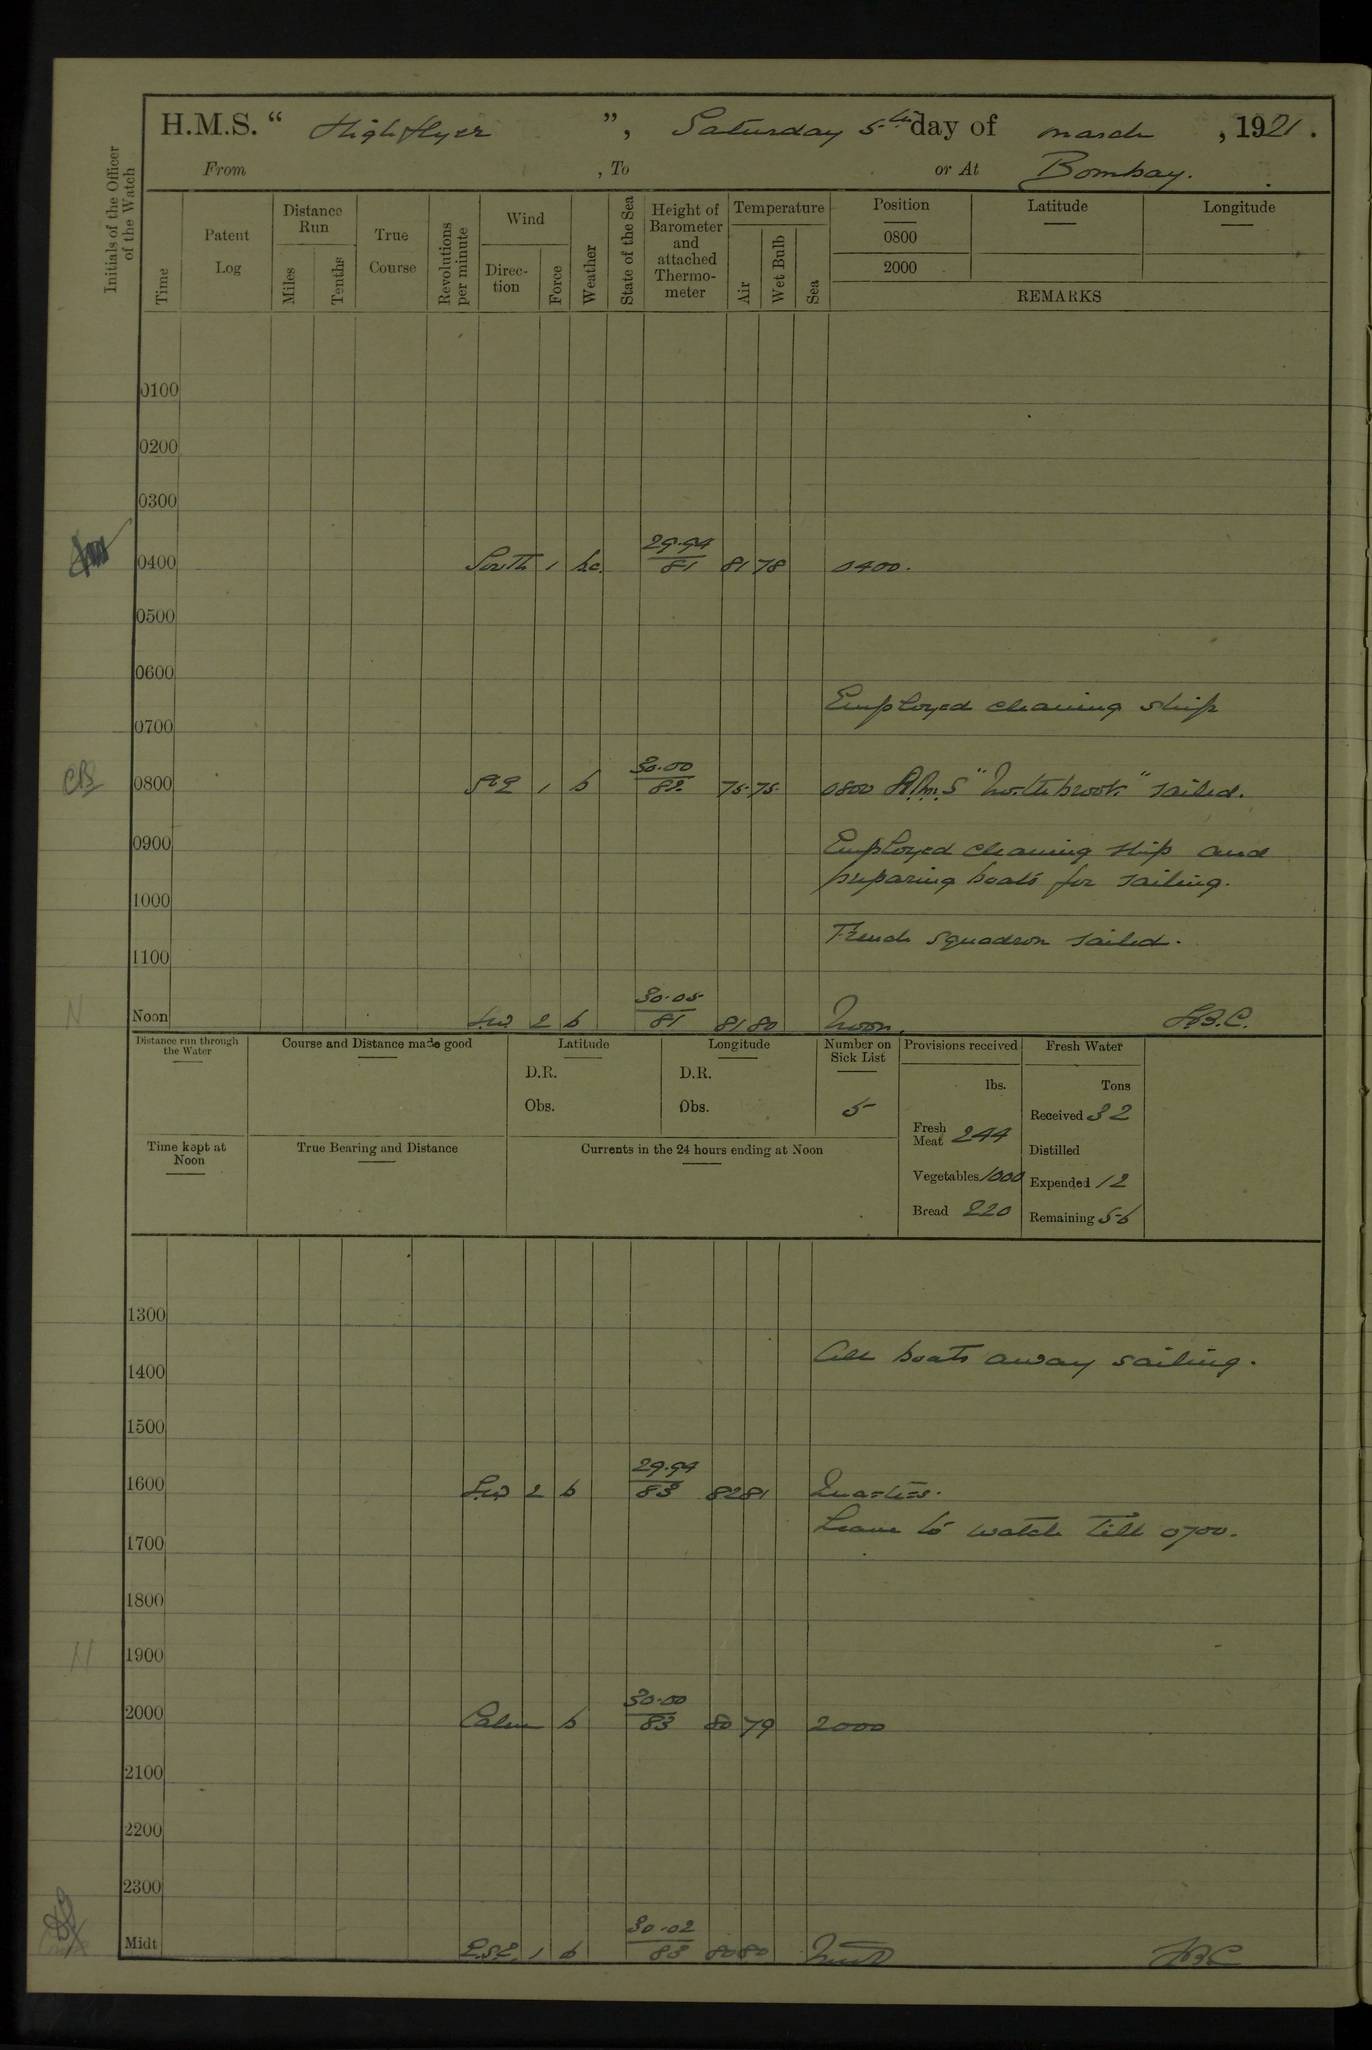 H.M.S. " Highflyer ", Saturday 5th day of March, 1921.
From , To or At Bombay.
Initials of the Officer of the Watch
Time
Patent Log
Distance Run
Miles
Tenths
True Course
Revolutions per minute
Wind
Direction
Force
Weather
State of the Sea
Height of Barometer and attached Thermometer
Temperature
Air
Wet Bulb
Sea
Position
0800
2000
Latitude
Longitude
REMARKS
0100
0200
0300
0400 South 1 b.c. 29.94 81 81 78 0400.
0500
0600
Employed cleaning ship
0700
0800 1 b 30.00 82 75 75 0800 R.I.M.S "Northbrook" sailed.
0900 Employed cleaning ship and
preparing boats for sailing.
1000
French squadron sailed.
1100
Noon S.W 2 b 30.05 81 81 80 Noon. H.B.C.
Distance run through the Water
Course and Distance made good
Latitude
D.R.
Obs.
Longitude
D.R.
Obs.
Number on Sick List
5
Provisions received
lbs.
Fresh Meat 244
Vegetables 1000
Bread 220
Fresh Water
Tons
Received 32
Distilled
Expended 12
Remaining 56
Time kept at Noon
True Bearing and Distance
Currents in the 24 hours ending at Noon
1300
All boats away sailing.
1400
1500
1600 S.W 2 b 29.94 83 82 81 Quarters.
Leave to watch till 0700.
1700
1800
1900
2000 Calm b 30.00 83 80 79 2000
2100
2200
2300
Midt E.S.E. 1 b 30.02 83 80 80 Midt HBC